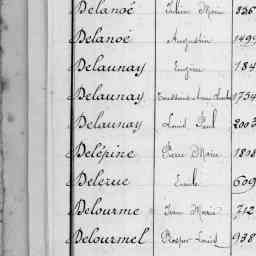 Delanoé Julien Marie 836
Delanoé Augustin 1499
Delaunay Eugène 184
Delaunay 1734
Delaunay Louis Paul 2003
Delépine Pierre Marie 1808
Delerue Emile 609
Delourme Jean Marie 712
Delourmel Prosper Louis 938